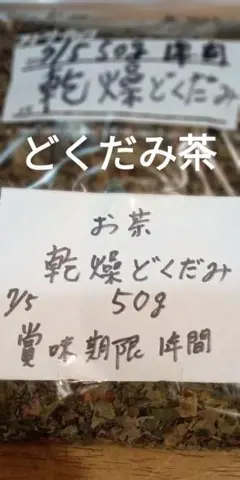 7/5 50g 1年間
乾燥どくだみ
どくだみ茶
お茶
乾燥どくだみ
7/5 50g
賞味期限 1年間